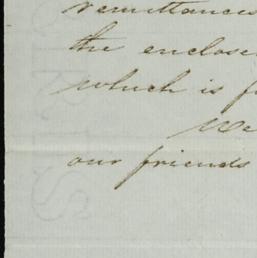 remittances
the enclose
which is f
We
our friends